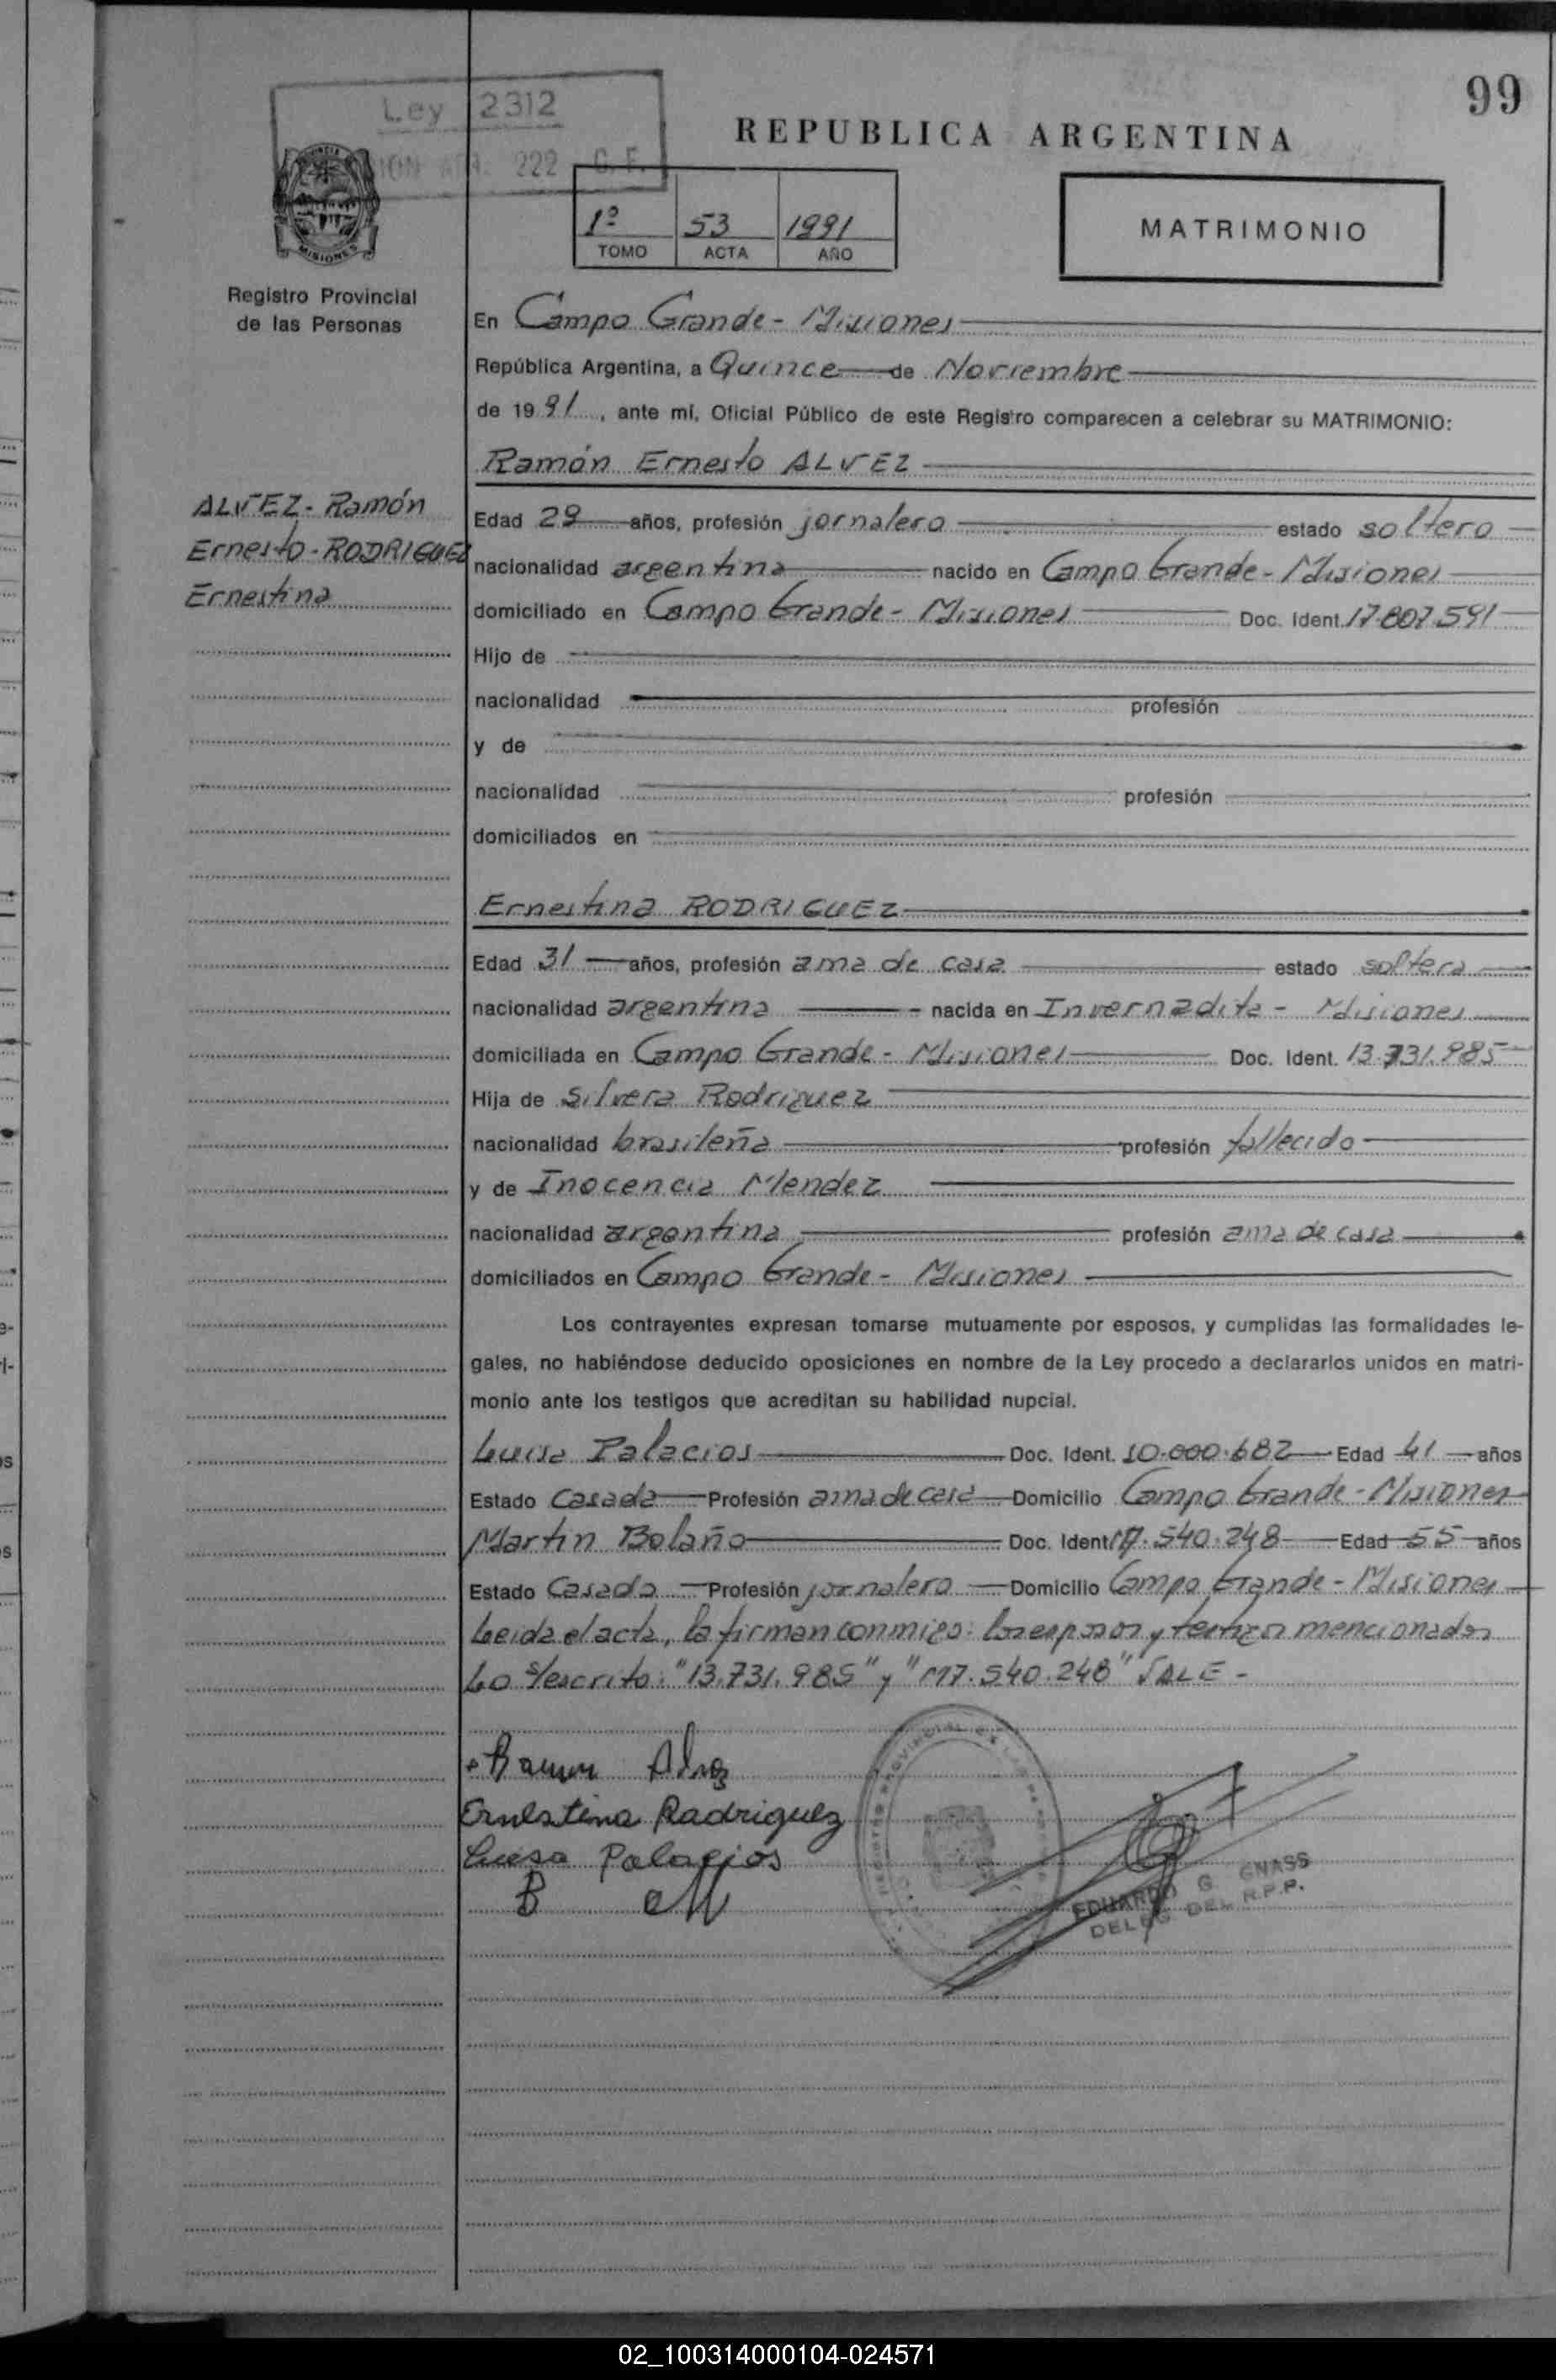 99
Ley 2312
222 C.F.
REPUBLICA ARGENTINA
1º 53 1991
TOMO ACTA AÑO
MATRIMONIO
MISIONES
Registro Provincial
de las Personas
En Campo Grande - Misiones
República Argentina, a Quince de Noviembre
de 1991, ante mí, Oficial Público de este Registro comparecen a celebrar su MATRIMONIO:
Ramón Ernesto ALVEZ
ALVEZ - Ramón
Ernesto - RODRIGUEZ
Ernestina
Edad 29 años, profesión jornalero estado soltero
nacionalidad argentina nacido en Campo Grande - Misiones
domiciliado en Campo Grande - Misiones Doc. Ident. 17.807.591
Hijo de
nacionalidad profesión
y de
nacionalidad profesión
domiciliados en
Ernestina RODRIGUEZ
Edad 31 años, profesión ama de casa estado soltera
nacionalidad argentina nacida en Invernadita - Misiones
domiciliada en Campo Grande - Misiones Doc. Ident. 13.731.985
Hija de Silvera Rodriguez
nacionalidad brasileña profesión fallecido
y de Inocencia Mendez
nacionalidad argentina profesión ama de casa
domiciliados en Campo Grande - Misiones
Los contrayentes expresan tomarse mutuamente por esposos, y cumplidas las formalidades le-
gales, no habiéndose deducido oposiciones en nombre de la Ley procedo a declararlos unidos en matri-
monio ante los testigos que acreditan su habilidad nupcial.
Luisa Palacios Doc. Ident. 10.000.682 Edad 41 años
Estado Casada Profesión ama de casa Domicilio Campo Grande - Misiones
Martin Bolaño Doc. Ident. M7.540.248 Edad 55 años
Estado Casado Profesión jornalero Domicilio Campo Grande - Misiones
Leida el acta, la firman conmigo: los esposos y testigos mencionados
Lo s/escrito: "13.731.985" y "M7.540.248" VALE -
Ramon Alvez
Ernestina Radriguez
Luisa Palacios
B
EDUARDO G. GNASS
DELEG DEL R.P.P.
02_100314000104-024571